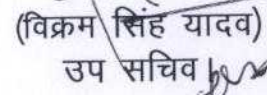 (विक्रम सिंह यादव)
उप सचिव